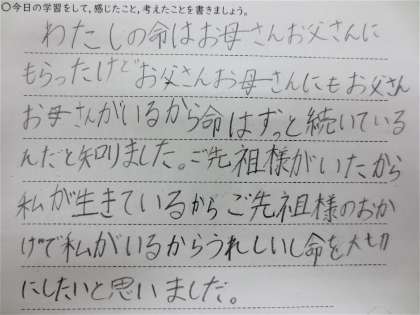 ○今日の学習をして,感じたこと,考えたことを書きましょう。
わたしの命はお母さんお父さんに
もらったけどお父さんお母さんにもお父さん
お母さんがいるから命はずっと続いている
んだと知りました。ご先祖様がいたから
私が生きているからご先祖様のおか
げで私がいるからうれしいし命を大切
にしたいと思いました。